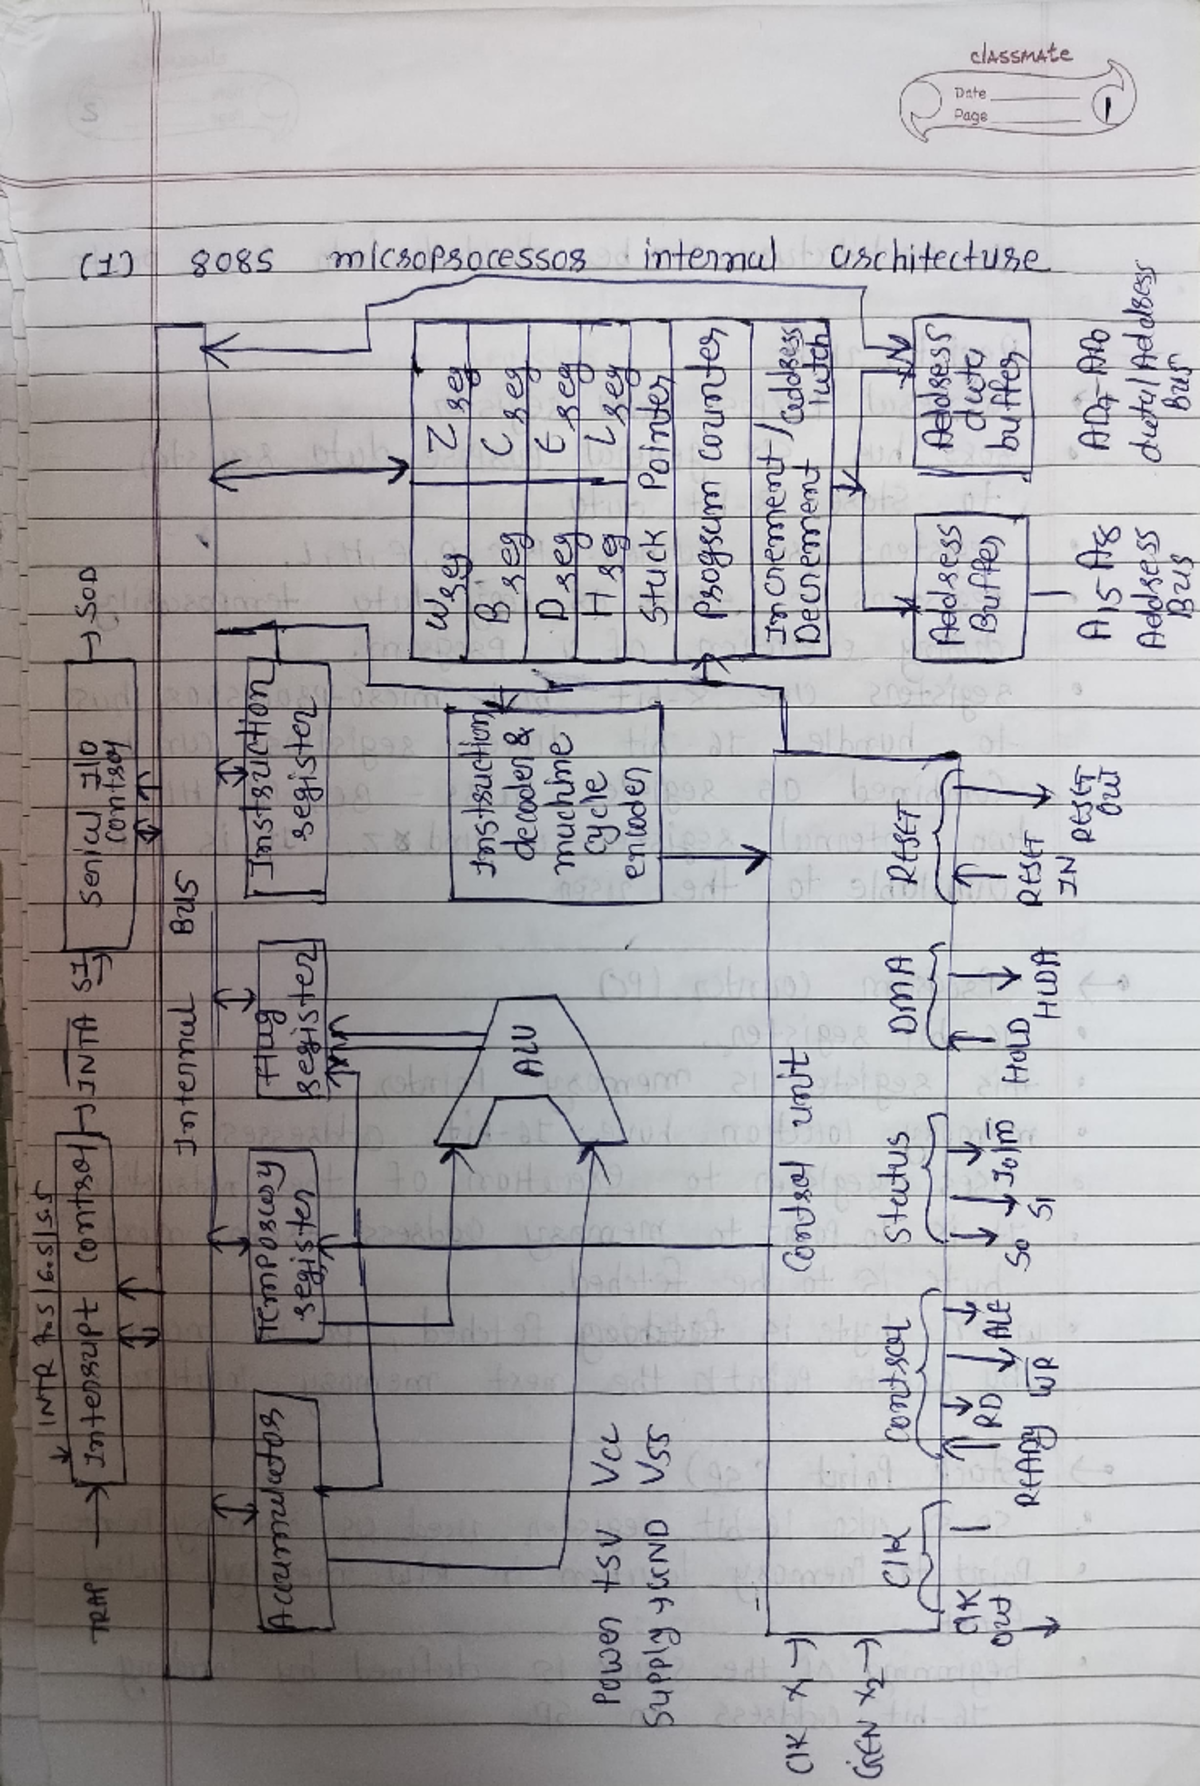 classmate
Date
Page
1
(1) 8085 microprocessor internal architecture
TRAP
INTR 7.5 6.5 5.5
Interrupt control
INTA
SI
Serical I/O
control
SOD
Internal BUS
Accumulator
Temporary
register
Flag
register
Instruction
register
ALU
Instruction
decoder &
machine
cycle
encoder
W reg Z reg
B reg C reg
D reg E reg
H reg L reg
Stack Pointer
Program counter
Increment/
Decrement
address
latch
Address
Buffer
Address
data
buffer
A15-A8
Address
Bus
AD7-AD0
data/Address
Bus
Power +5V Vcc
Supply GND VSS
CLK X1
GEN X2
Control unit
CLK
Control
Status
DMA
RESET
CLK
out
READY
RD
WR
ALE
S0
S1
IO/M̅
HOLD
HLDA
RESET
IN
RESET
OUT